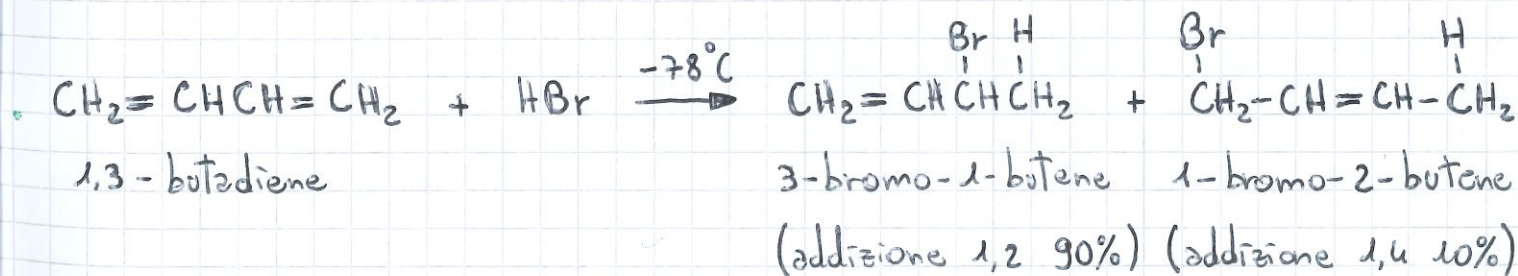 Br H Br H
CH₂ = CHCH = CH₂ + HBr -78°C → CH₂ = CHCHCH₂ + CH₂-CH=CH-CH₂
1,3-butadiene 3-bromo-1-butene 1-bromo-2-butene
(addizione 1,2 90%) (addizione 1,4 10%)